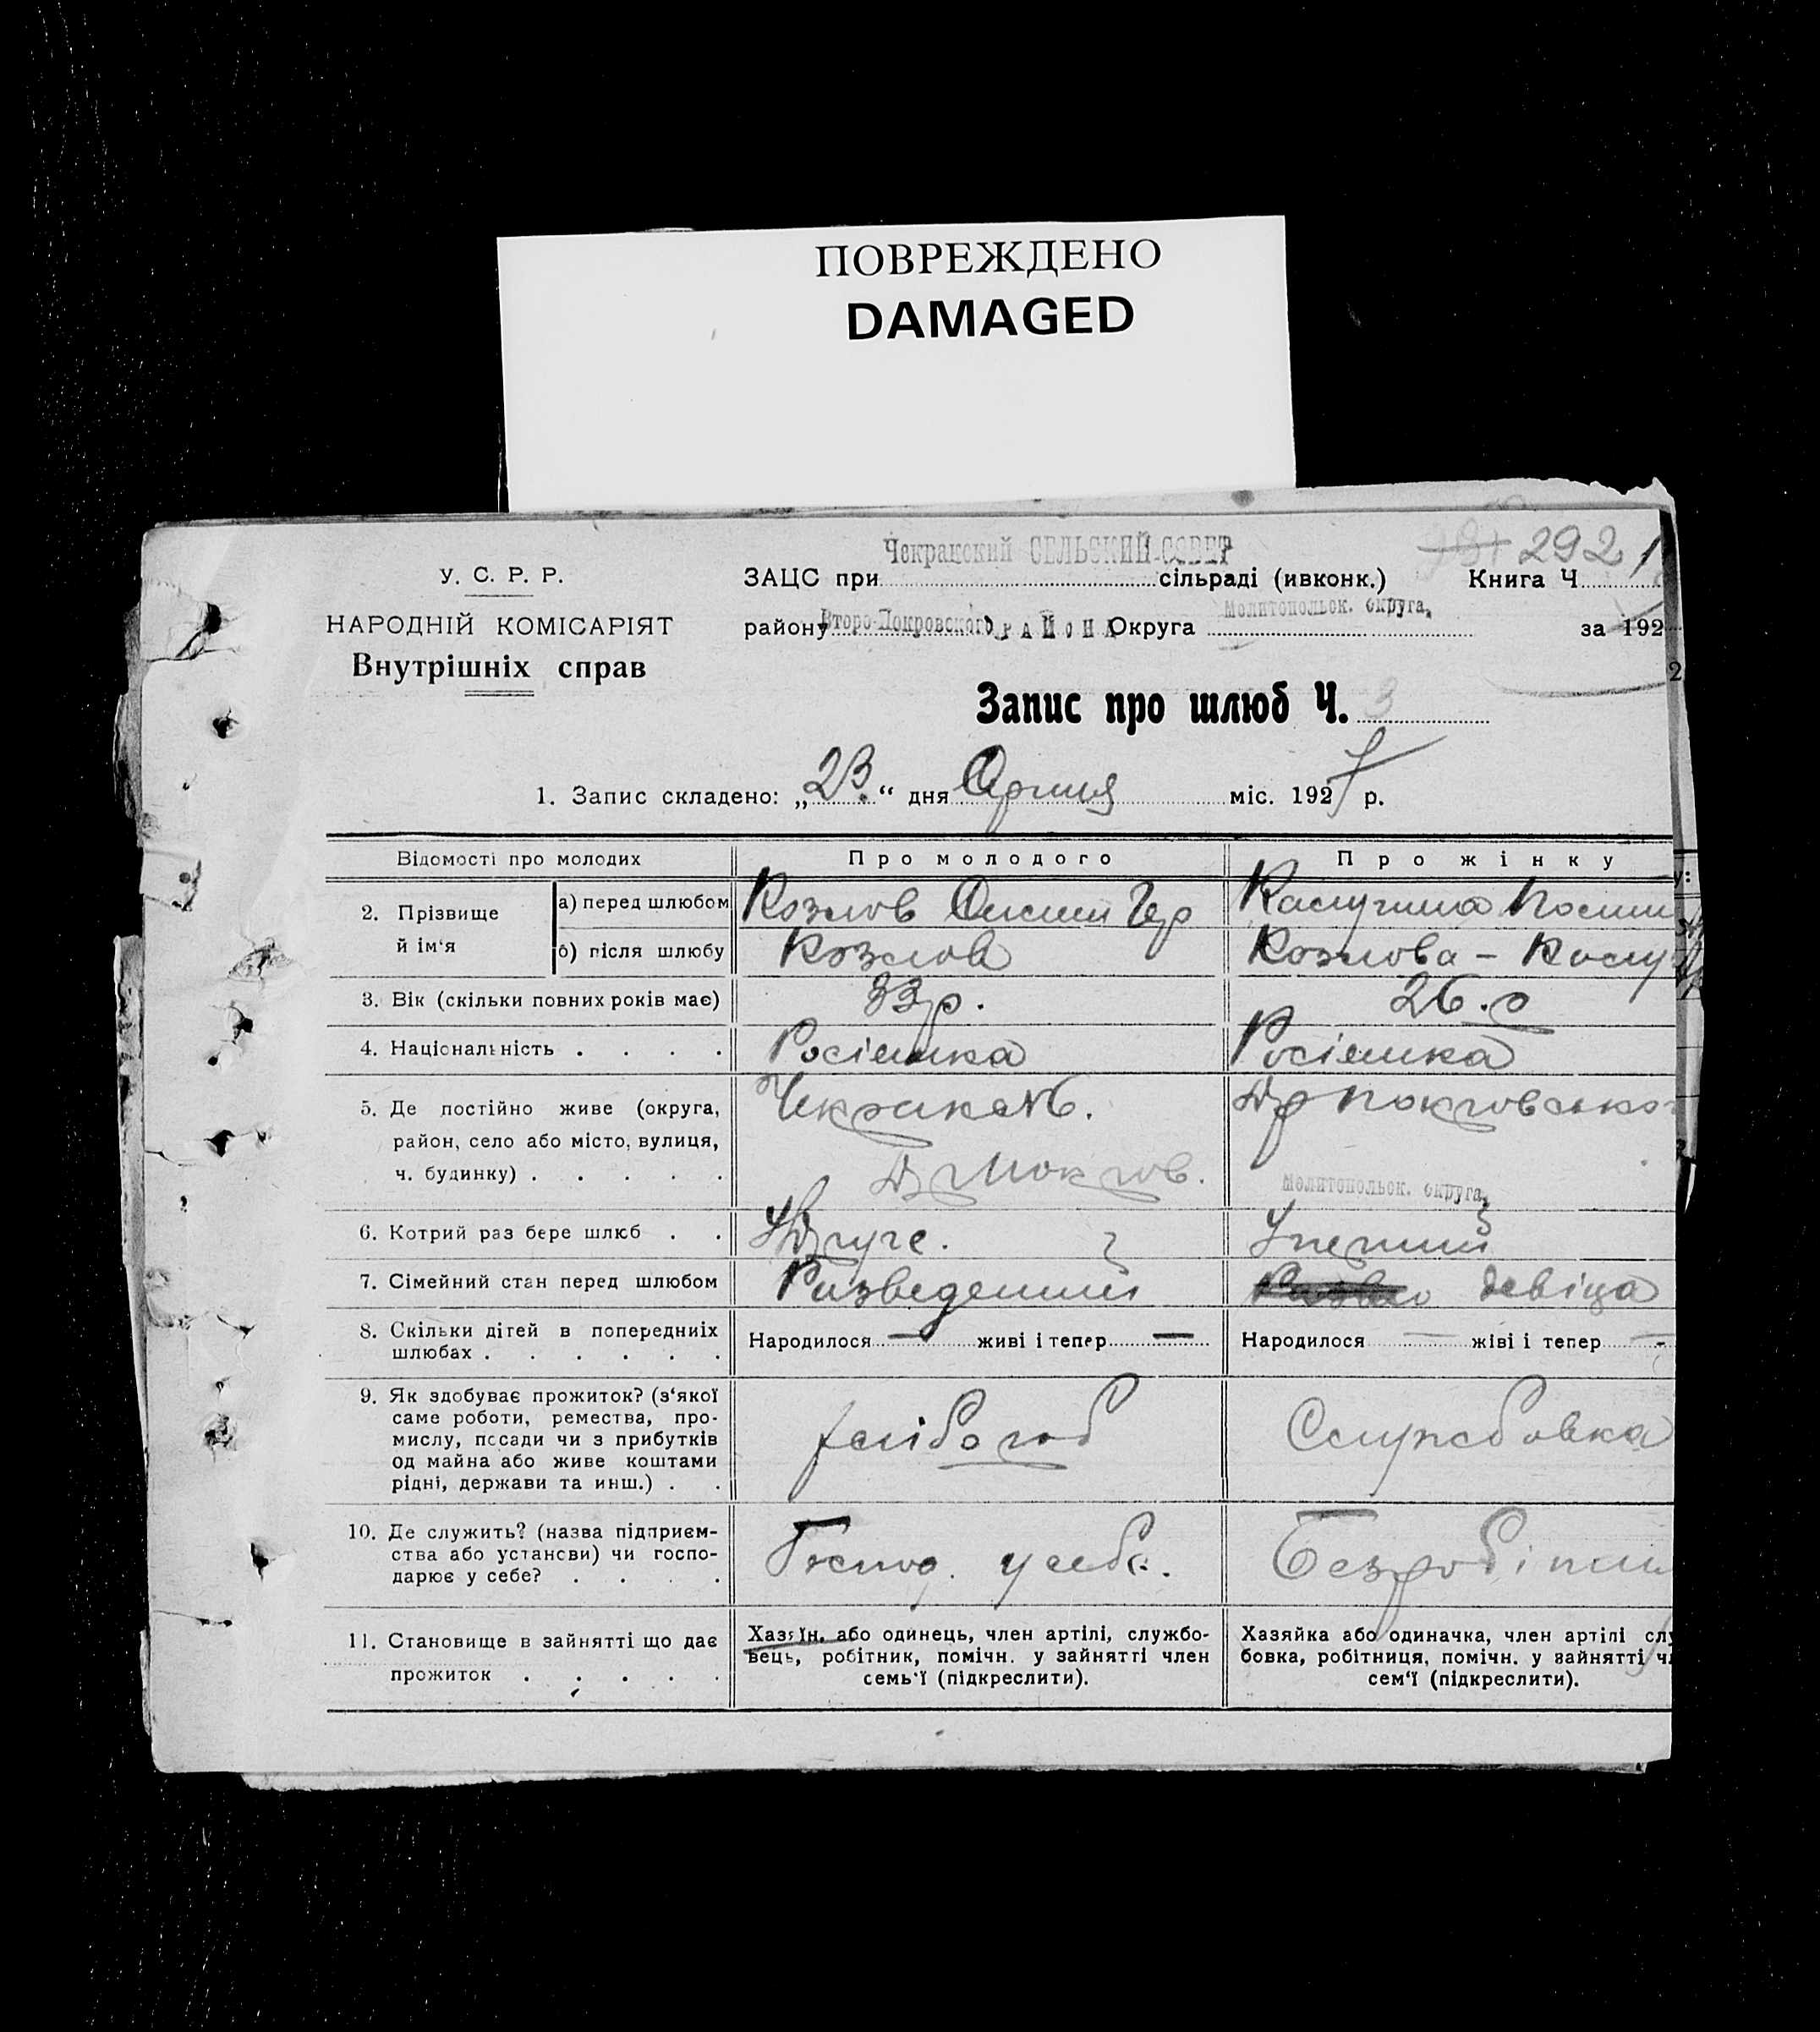 ПОВРЕЖДЕНО
DAMAGED
292
У. С. Р. Р.
НАРОДНІЙ КОМІСАРІЯТ
Внутрішніх справ
Чекракский СЕЛЬСКИЙ СОВЕТ
ЗАЦС при сільраді (ивконк.) Книга Ч 1
Второ-Покровского РАЙОНА Мелитопольск. округа,
району Округа за 192
Запис про шлюб Ч. 3
1. Запис складено: „23“ дня міс. 1927 р.
Відомості про молодих Про молодого Про жінку
2. Прізвище й ім‘я
а) перед шлюбом Козлов
б) після шлюбу Козлов Козлова –
3. Вік (скільки повних років має) 33 р. 26
4. Національність . . . . Росіянка Росіянка
5. Де постійно живе (округа,
район, село або місто, вулиця,
ч. будинку) . . . . .
Чекрак №6.
Покров.
Мелитопольск. округа,
6. Котрий раз бере шлюб . . Удруге. Уперший
7. Сімейний стан перед шлюбом Разведенний девіца
8. Скільки дітей в попередниіх
шлюбах . . . . . .
Народилося — живі і тепер — Народилося — жіві і тепер —
9. Як здобуває прожиток? (з‘якої
саме роботи, ремества, про-
мислу, посади чи з прибутків
од майна або живе коштами
рідні, держави та инш.) . .
хлібороб Службовка
10. Де служить? (назва підприєм-
ства або установи) чи госпо-
дарює у себе? . . . .
Господ. у себе. Безробітн
11. Становище в зайнятті що дає
прожиток . . . . .
Хазяїн, або одинець, член артілі, службо-
вець, робітник, помічн. у зайнятті член
семь‘ї (підкреслити).
Хазяйка або одиначка, член артілі слу
бовка, робітниця, помічн. у зайнятті чл
сем‘ї (підкреслити).